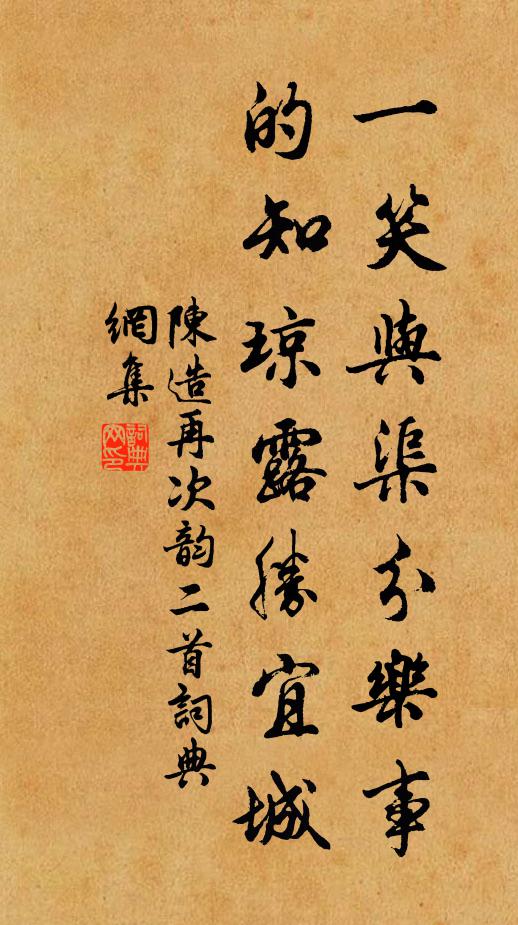 一笑與渠分樂事
的知琼露勝宜城
陳造再次韵二首詞典
網集
詞典
网印